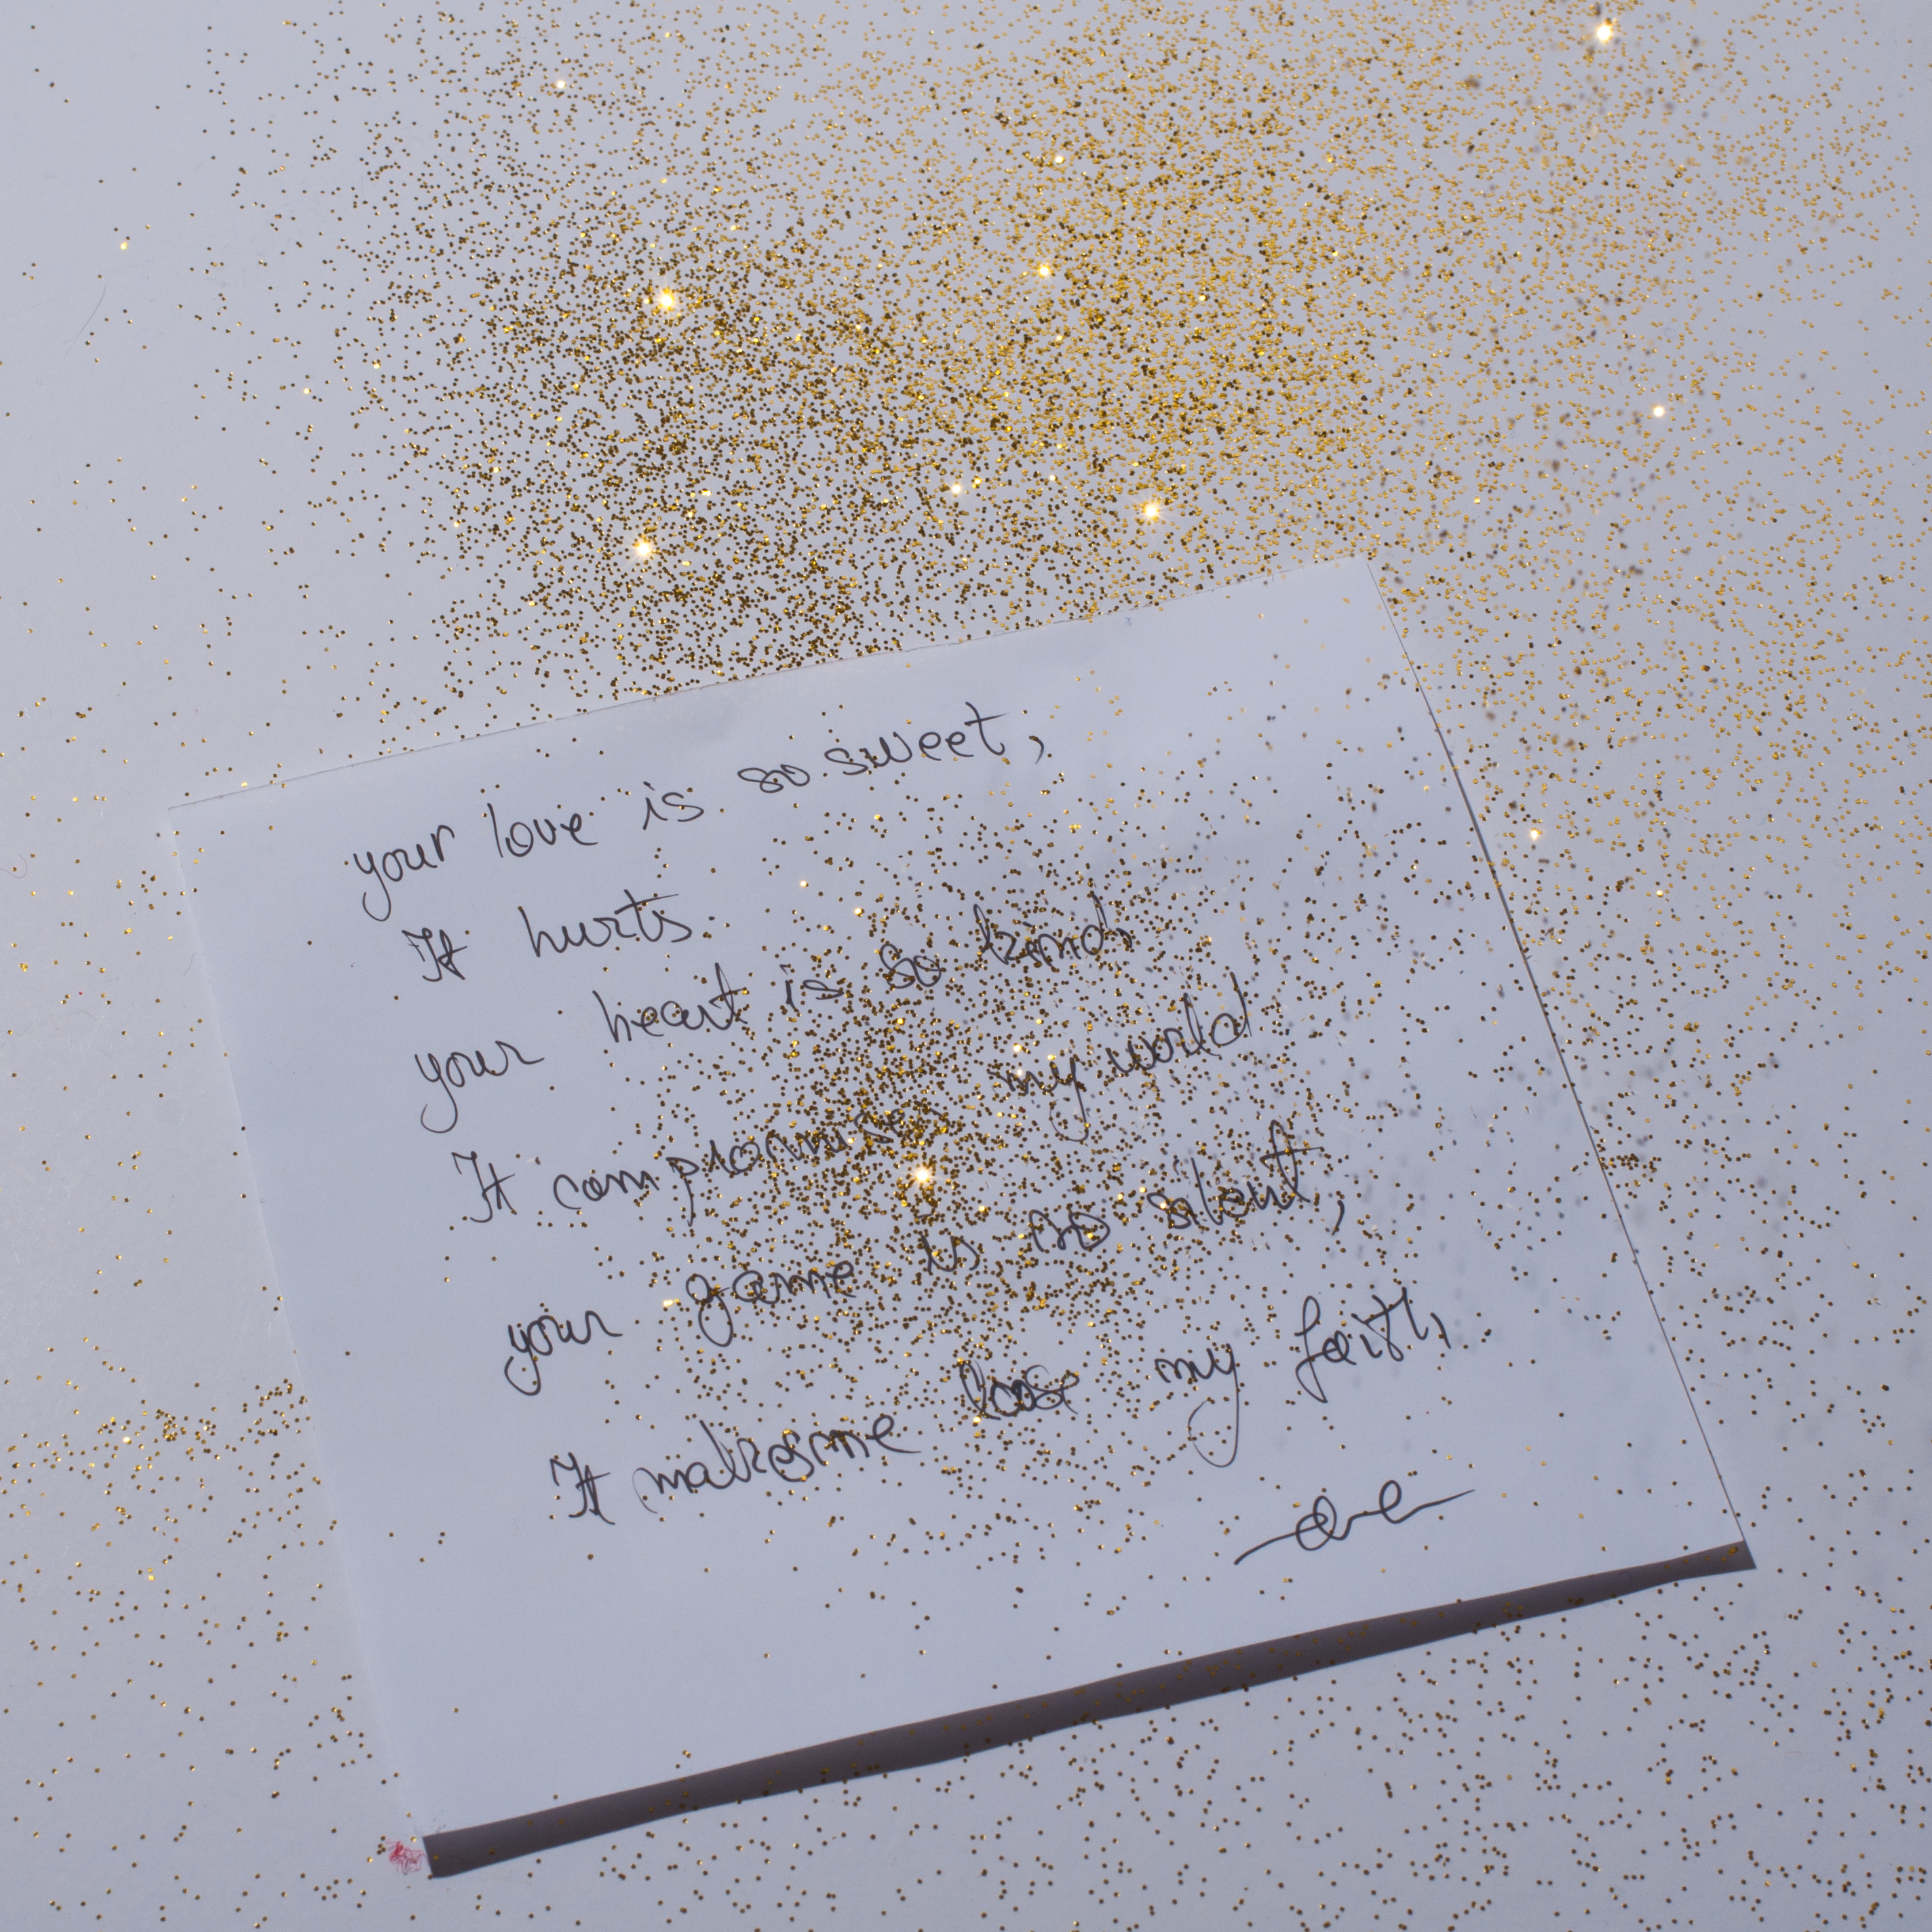 your love is so sweet,
It hurts.
your heart is so kind,
It compromise my world
your game is so silent,
It makes me lose my faith,